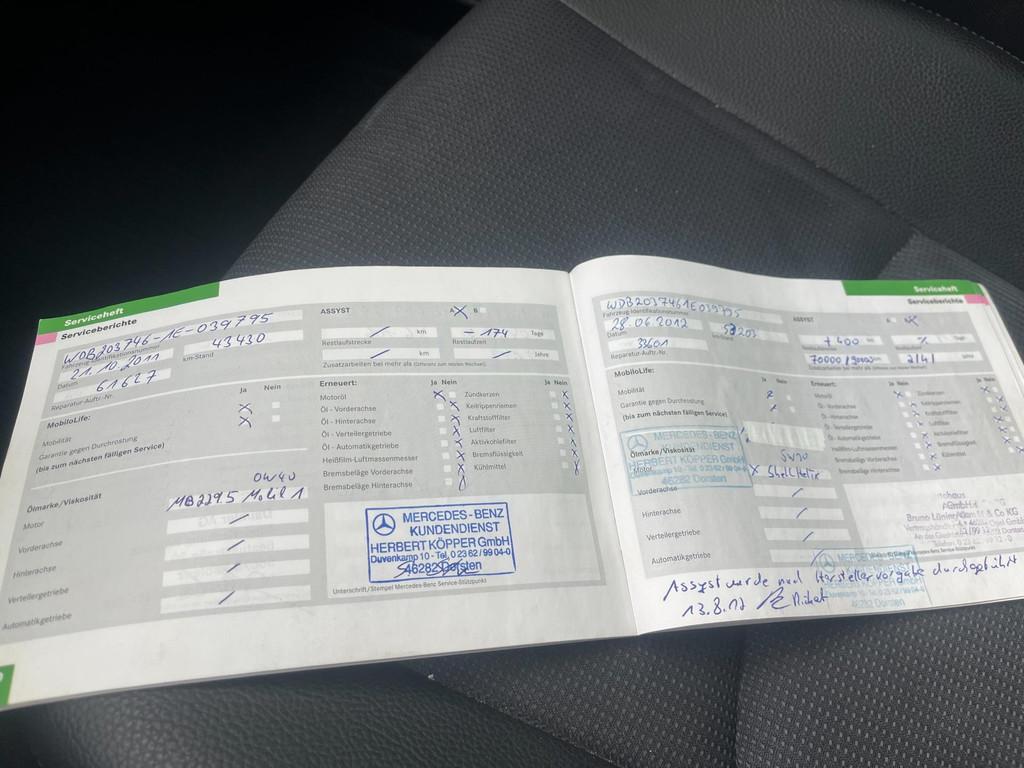 Serviceheft
Serviceberichte
WDB203746-1E-039795
Fahrzeug-Identifikationsnummer
21.10.2011
43430
Datum
km-Stand
61627
Reparatur-Auftr.-Nr.
Ja Nein
MobiloLife:
Mobilität
Garantie gegen Durchrostung
(bis zum nächsten fälligen Service)
0W40
Ölmarke/Viskosität
MB229.5 Mobil 1
Motor
Vorderachse
Hinterachse
Verteilergetriebe
Automatikgetriebe
ASSYST
B
km
- 174
Tage
Restlaufstrecke
Restlaufzeit
km
Jahre
Zusatzarbeiten bei mehr als
Erneuert:
Ja Nein
Ja Nein
Motoröl
Zündkerzen
Öl - Vorderachse
Keilrippenriemen
Öl - Hinterachse
Kraftstofffilter
Öl - Verteilergetriebe
Luftfilter
Öl - Automatikgetriebe
Aktivkohlefilter
Heißfilm-Luftmassenmesser
Bremsflüssigkeit
Bremsbeläge Vorderachse
Kühlmittel
Bremsbeläge Hinterachse
MERCEDES-BENZ
KUNDENDIENST
HERBERT KÖPPER GmbH
Duvenkamp 10 - Tel. 0 23 62 / 99 04-0
46282 Dorsten
Unterschrift/Stempel Mercedes-Benz Service-Stützpunkt
Serviceheft
Serviceberichte
WDB2037461E039795
Fahrzeug-Identifikationsnummer
28.06.2012
Datum
33601
Reparatur-Auftr.-Nr.
ASSYST
+ 400
Zusatzarbeiten bei mehr als
MobiloLife:
Mobilität
Garantie gegen Durchrostung
(bis zum nächsten fälligen Service)
Ja Nein
Erneuert:
Ja Nein
Ja Nein
Motoröl
Zündkerzen
Öl - Vorderachse
Keilrippenriemen
Öl - Hinterachse
Kraftstofffilter
Öl - Verteilergetriebe
Luftfilter
Öl - Automatikgetriebe
Aktivkohlefilter
Heißfilm-Luftmassenmesser
Bremsflüssigkeit
Bremsbeläge Vorderachse
Kühlmittel
Bremsbeläge Hinterachse
MERCEDES-BENZ
KUNDENDIENST
HERBERT KÖPPER GmbH
46282 Dorsten
Ölmarke/Viskosität
Motor
Shell Helix
Vorderachse
Hinterachse
Verteilergetriebe
Automatikgetriebe
& Co KG
MERCEDES-BENZ
46282 Dorsten
Assyst wurde nach Herstellervorgabe durchgeführt
13.8.12